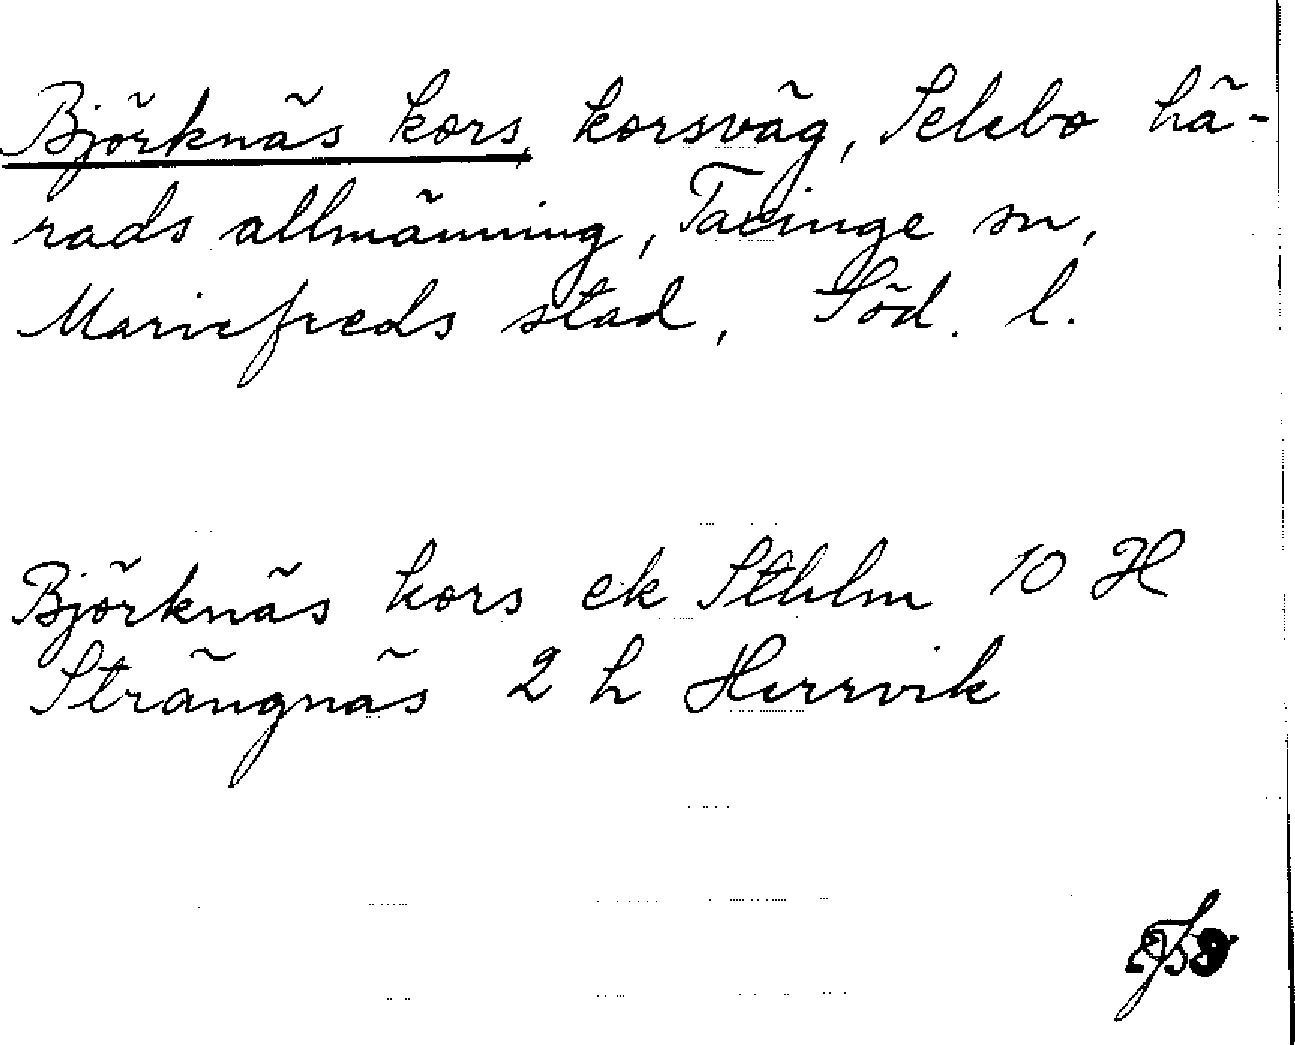 Björknäs kors, korsväg, Selebo hä-
rads allmänning, Taxinge sn,
Mariefreds stad, Söd. l.
Björknäs kors ek Sthlm 10 H
Strängnäs 2 h Herrvik